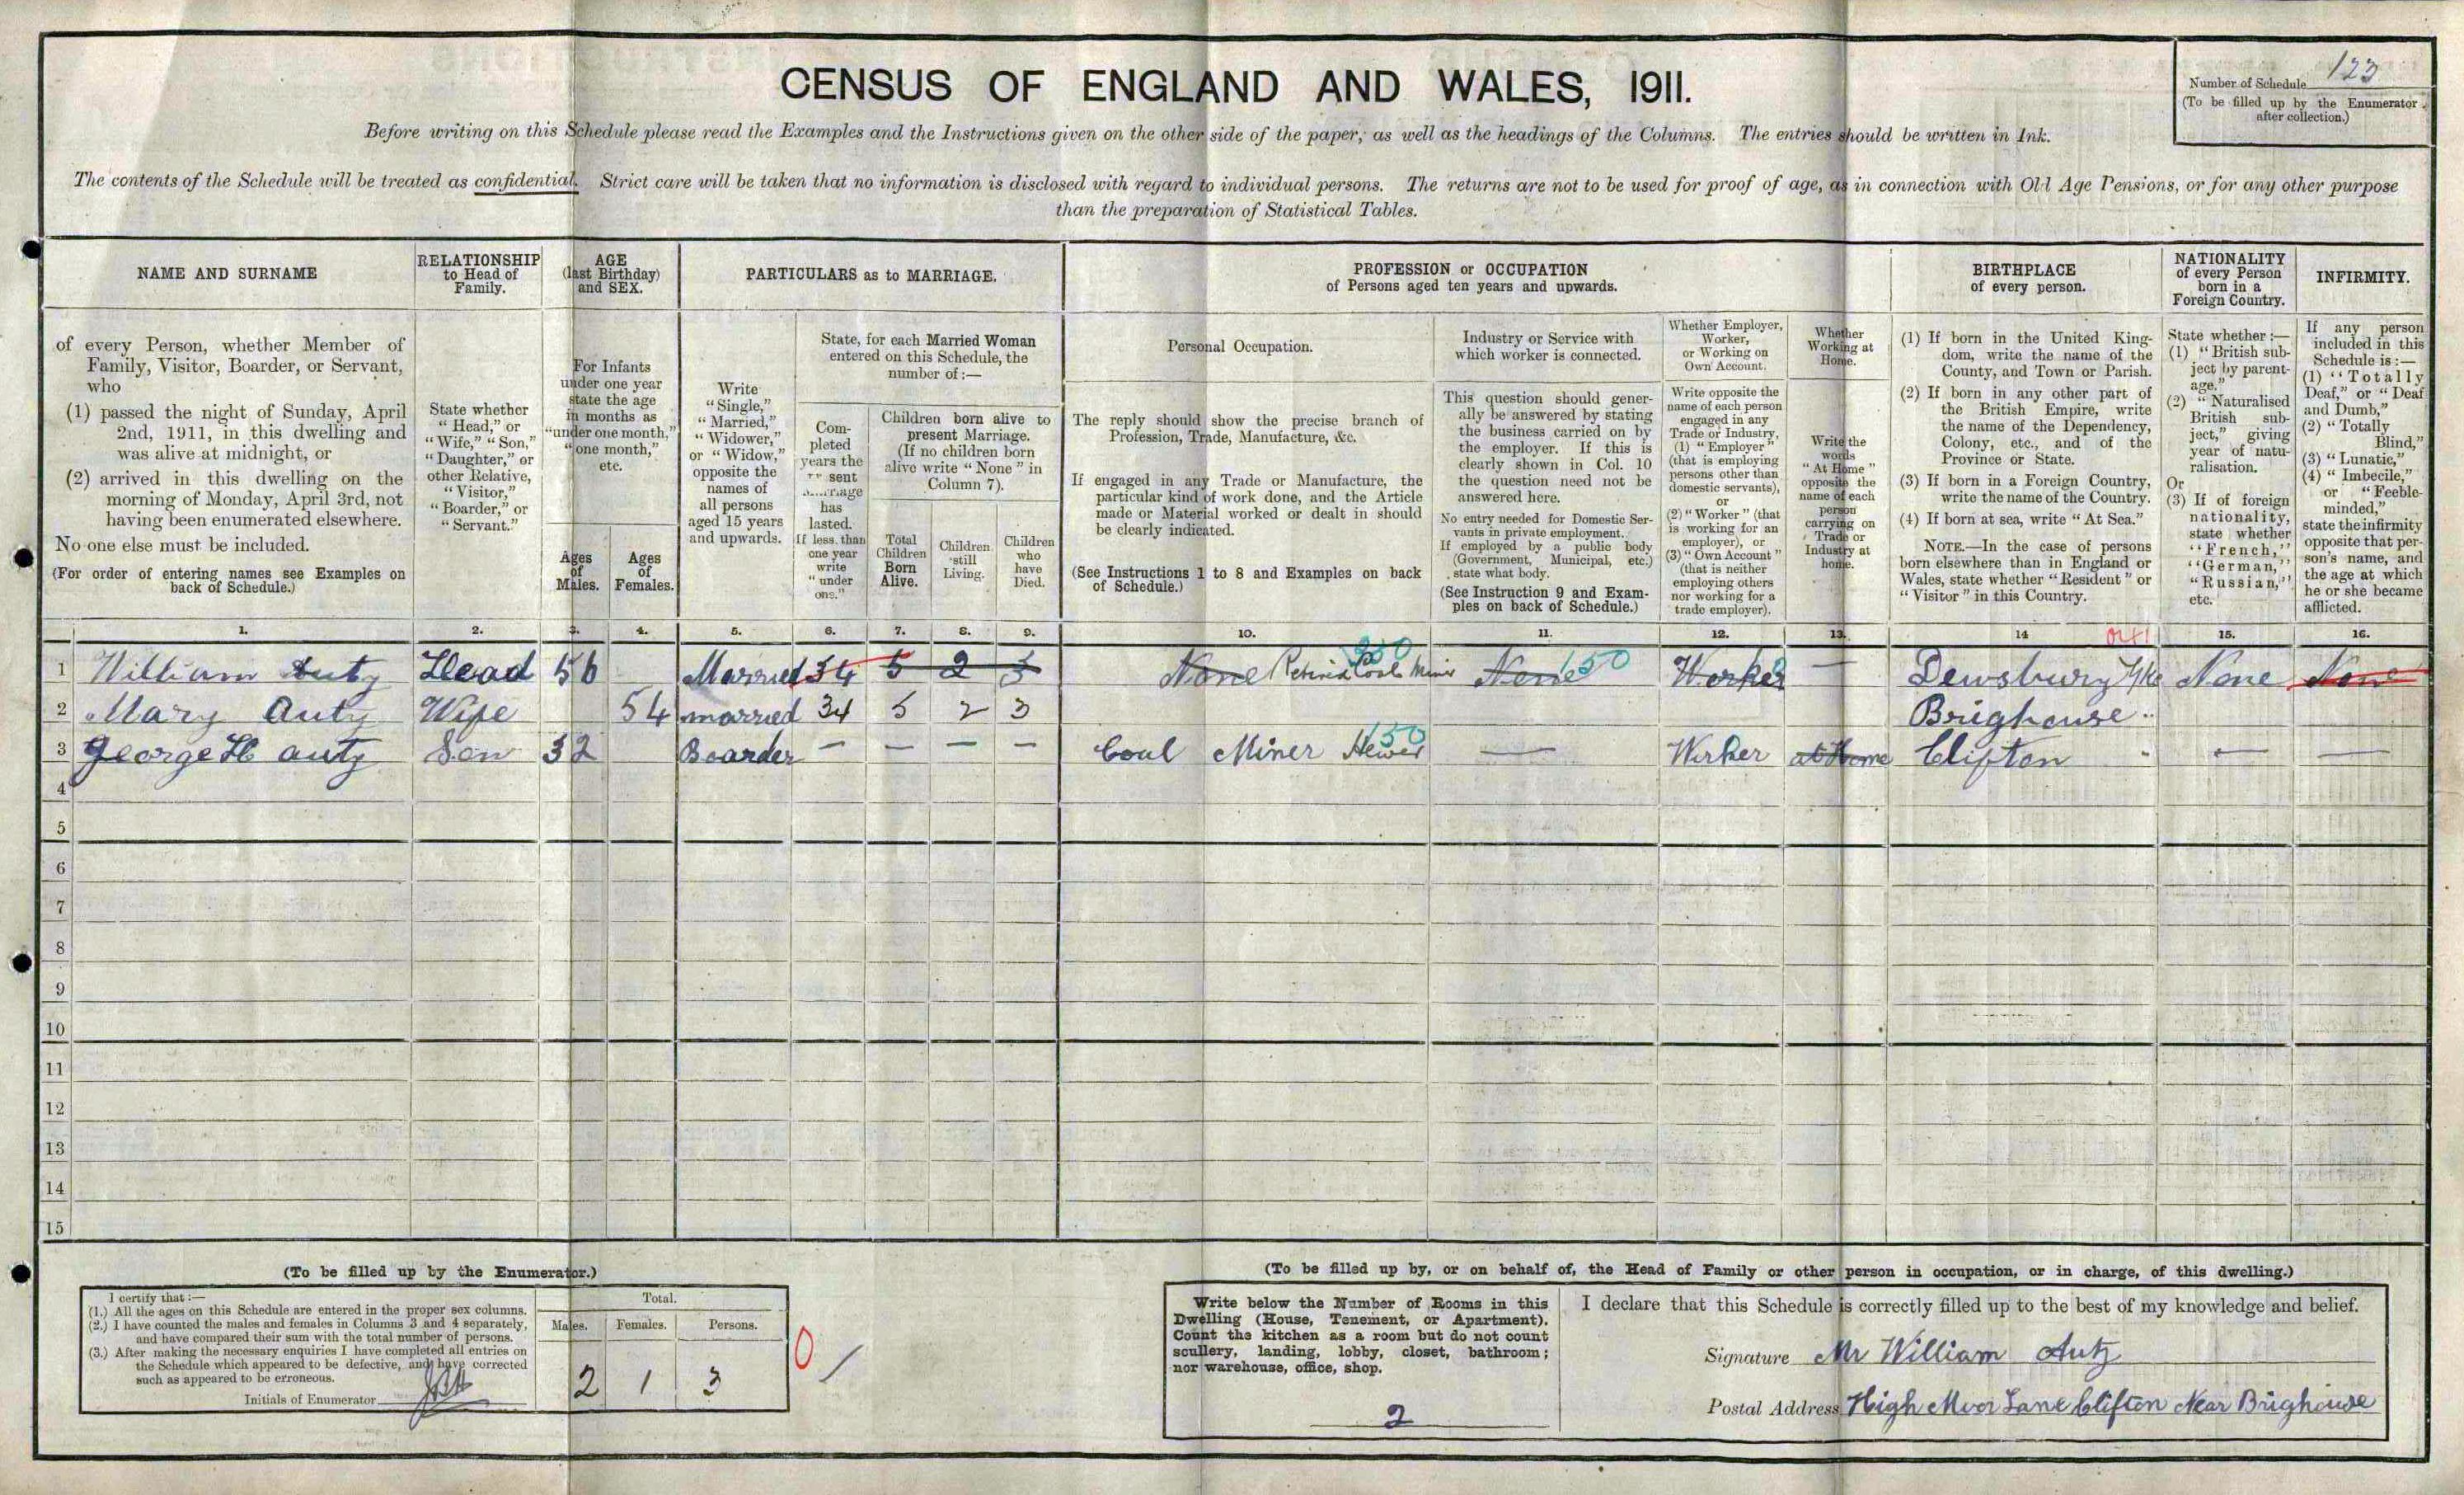 CENSUS OF ENGLAND AND WALES, 1911.
Number of Schedule 123
(To be filled up by the Enumerator after collection.)
Before writing on this Schedule please read the Examples and the Instructions given on the other side of the paper, as well as the headings of the Columns. The entries should be written in Ink.
The contents of the Schedule will be treated as confidential. Strict care will be taken that no information is disclosed with regard to individual persons. The returns are not to be used for proof of age, as in connection with Old Age Pensions, or for any other purpose
than the preparation of Statistical Tables.
NAME AND SURNAME
of every Person, whether Member of
Family, Visitor, Boarder, or Servant,
who
(1) passed the night of Sunday, April
2nd, 1911, in this dwelling and
was alive at midnight, or
(2) arrived in this dwelling on the
morning of Monday, April 3rd, not
having been enumerated elsewhere.
No one else must be included.
(For order of entering names see Examples on
back of Schedule.)
RELATIONSHIP
to Head of
Family.
State whether
"Head," or
"Wife," "Son,"
"Daughter," or
other Relative,
"Visitor,"
"Boarder," or
"Servant."
AGE
(last Birthday)
and SEX.
For Infants
under one year
state the age
in months as
"under one month,"
"one month,"
etc.
Ages
of
Males.
Ages
of
Females.
PARTICULARS as to MARRIAGE.
Write
"Single,"
"Married,"
"Widower,"
or "Widow,"
opposite the
names of
all persons
aged 15 years
and upwards.
State, for each Married Woman
entered on this Schedule, the
number of :—
Com-
pleted
years the
sent
has
lasted.
If less than
one year
write
"under
one."
Children born alive to
present Marriage.
(If no children born
alive write "None" in
Column 7).
Total
Children
Born
Alive.
Children
still
Living.
Children
who
have
Died.
PROFESSION or OCCUPATION
of Persons aged ten years and upwards.
Personal Occupation.
The reply should show the precise branch of
Profession, Trade, Manufacture, &c.
If engaged in any Trade or Manufacture, the
particular kind of work done, and the Article
made or Material worked or dealt in should
be clearly indicated.
(See Instructions 1 to 8 and Examples on back
of Schedule.)
Industry or Service with
which worker is connected.
This question should gener-
ally be answered by stating
the business carried on by
the employer. If this is
clearly shown in Col. 10
the question need not be
answered here.
No entry needed for Domestic Ser-
vants in private employment.
If employed by a public body
(Government, Municipal, etc.)
state what body.
(See Instruction 9 and Exam-
ples on back of Schedule.)
Whether Employer,
Worker,
or Working on
Own Account.
Write opposite the
name of each person
engaged in any
Trade or Industry,
(1) "Employer"
(that is employing
persons other than
domestic servants),
or
(2) "Worker" (that
is working for an
employer), or
(3) "Own Account"
(that is neither
employing others
nor working for a
trade employer).
Whether
Working at
Home.
Write the
words
"At Home"
opposite the
name of each
person
carrying on
Trade or
Industry at
home.
BIRTHPLACE
of every person.
(1) If born in the United King-
dom, write the name of the
County, and Town or Parish.
(2) If born in any other part of
the British Empire, write
the name of the Dependency,
Colony, etc., and of the
Province or State.
(3) If born in a Foreign Country,
write the name of the Country.
(4) If born at sea, write "At Sea."
NOTE.—In the case of persons
born elsewhere than in England or
Wales, state whether "Resident" or
"Visitor" in this Country.
NATIONALITY
of every Person
born in a
Foreign Country.
State whether :—
(1) "British sub-
ject by parent-
age."
(2) "Naturalised
British sub-
ject," giving
year of natu-
ralisation.
Or
(3) If of foreign
nationality,
state whether
"French,"
"German,"
"Russian,"
etc.
INFIRMITY.
If any person
included in this
Schedule is :—
(1) "Totally
Deaf," or "Deaf
and Dumb,"
(2) "Totally
Blind,"
(3) "Lunatic,"
(4) "Imbecile,"
or "Feeble-
minded,"
state the infirmity
opposite that per-
son's name, and
the age at which
he or she became
afflicted.
1. 2. 3. 4. 5. 6. 7. 8. 9. 10. 11. 12. 13. 14 15. 16.
041
1 William Auty Head 56 Married 34 5 2 3 None Retired Coal Miner 350 None 150 Worker — Dewsbury Yks None None
2 Mary Auty Wife 54 married 34 5 2 3 Brighouse "
3 George H auty Son 32 Boarder — — — — Coal Miner Hewer 150 — Worker at Home Clifton " — —
4
5
6
7
8
9
10
11
12
13
14
15
(To be filled up by the Enumerator.)
I certify that :—
(1.) All the ages on this Schedule are entered in the proper sex columns.
(2.) I have counted the males and females in Columns 3 and 4 separately,
and have compared their sum with the total number of persons.
(3.) After making the necessary enquiries I have completed all entries on
the Schedule which appeared to be defective, and have corrected
such as appeared to be erroneous.
Initials of Enumerator
Total.
Males. Females. Persons.
2 1 3
0
(To be filled up by, or on behalf of, the Head of Family or other person in occupation, or in charge, of this dwelling.)
Write below the Number of Rooms in this
Dwelling (House, Tenement, or Apartment).
Count the kitchen as a room but do not count
scullery, landing, lobby, closet, bathroom;
nor warehouse, office, shop.
2
I declare that this Schedule is correctly filled up to the best of my knowledge and belief.
Signature Mr William Auty
Postal Address High Moor Lane Clifton Near Brighouse